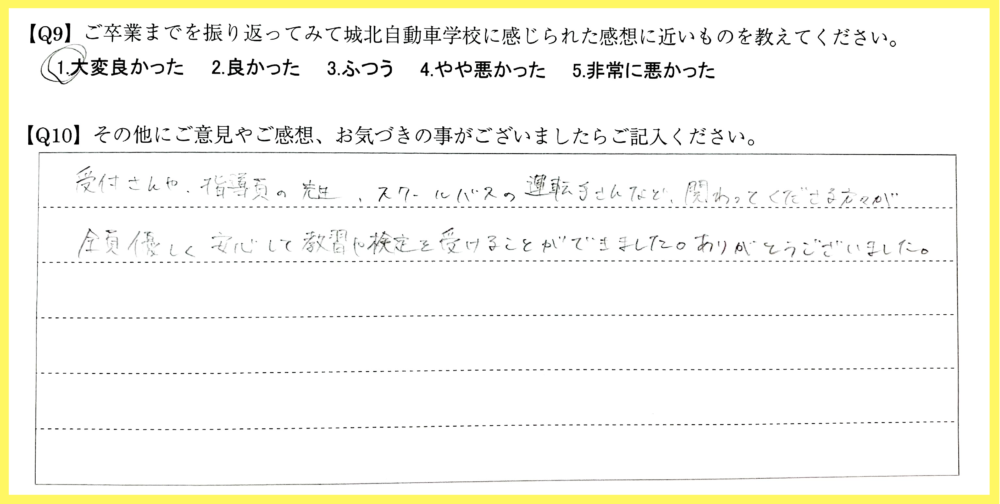 【Q9】ご卒業までを振り返ってみて城北自動車学校に感じられた感想に近いものを教えてください。
1.大変良かった 2.良かった 3.ふつう 4.やや悪かった 5.非常に悪かった
【Q10】その他にご意見やご感想、お気づきの事がございましたらご記入ください。
受付さんや、指導員の先生、スクールバスの運転手さんなど、関わってくださる方々が
全員優しく安心して教習や検定を受けることができました。ありがとうございました。